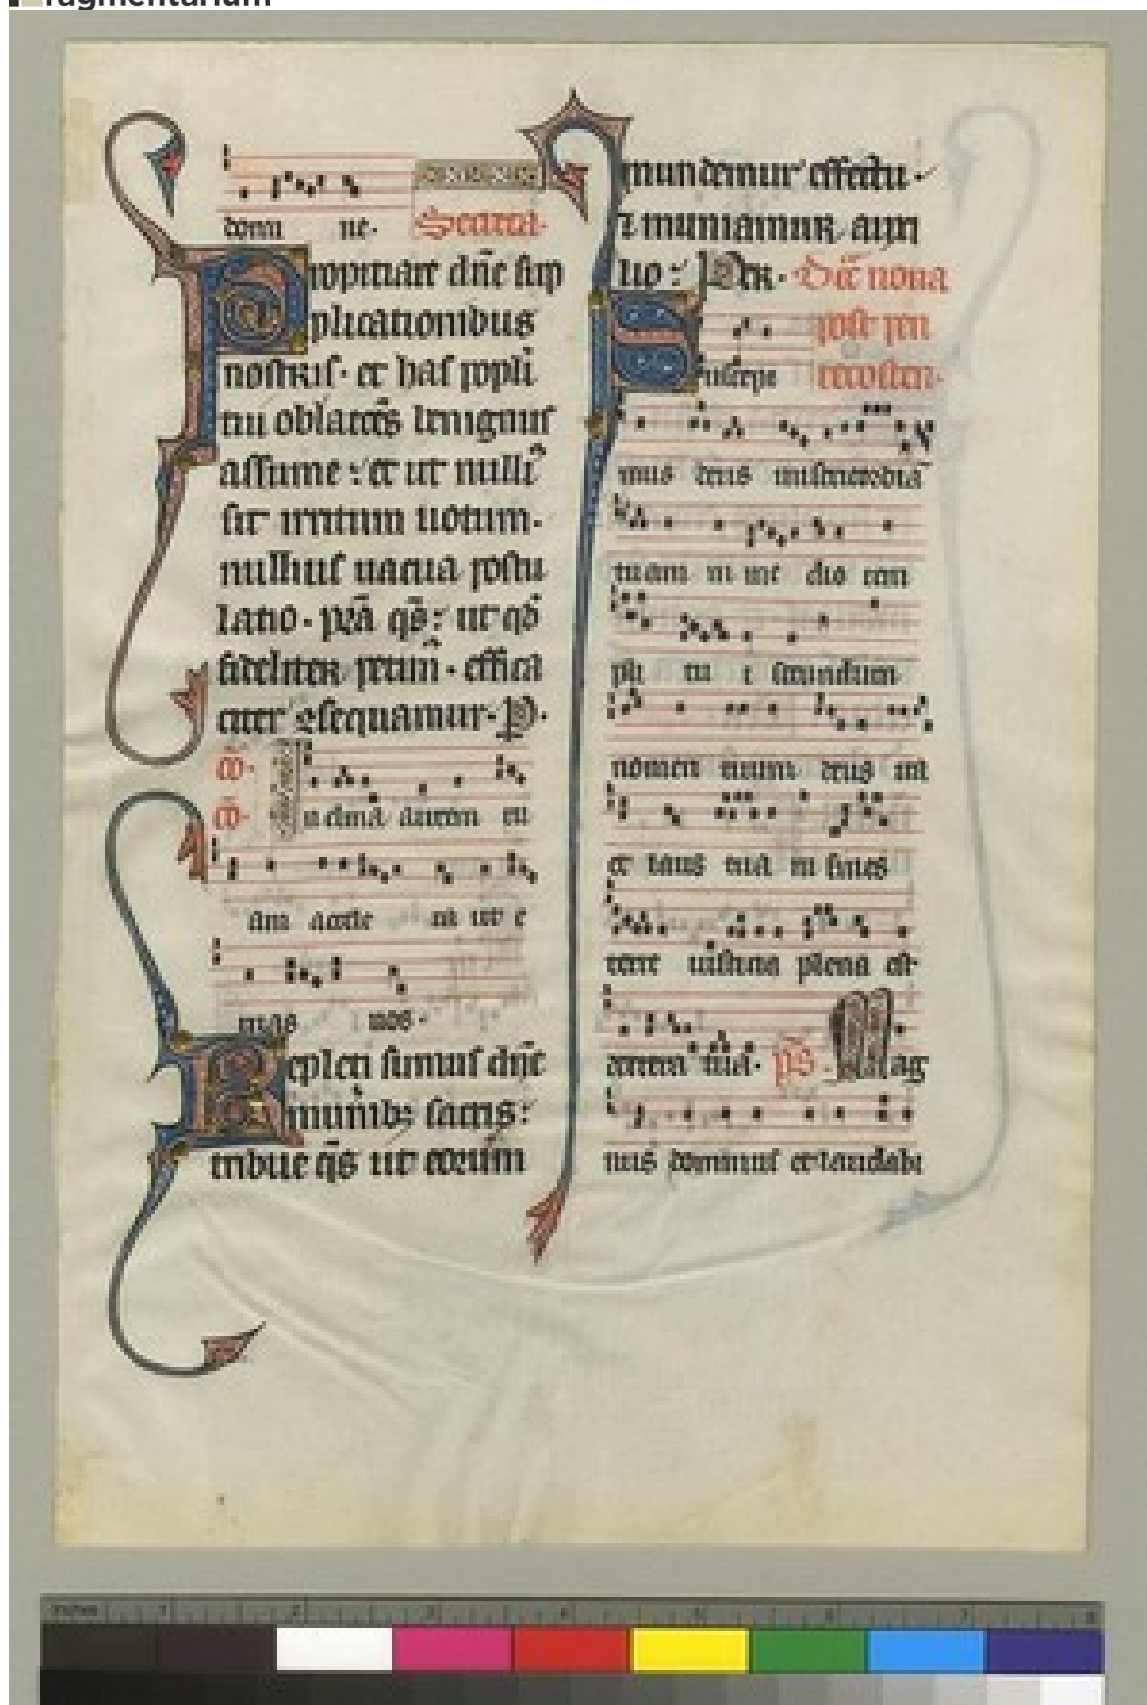 fragmentarium
domi ne. Secreta.
Propitiare dñe sup
plicationibus
nostris. et has ppli
tui oblatões benignus
assume : et ut nulli᷑
sit irritum uotum.
nullius uacua postu
latio. p̄sta q̄s : ut qď
fideliter petim᷑. effica
citer ꝯsequamur. P.
Inclina aurem tu
am accele ra ut e
ruas nos.
Repleti sumus dñe
munib; sacris :
tribue q̄s ut eorum
mundemur effectu.
⁊ muniamur auxi
lio : Per. Dñc̄ nona
post pen
Suscepi thecosten.
mus deus misericordiā
tuam in me dio tem
pli tu i secundum
nomen tuum deus ita
et laus tua in fines
terre iusticia plena est
dextera tua. ps̄. Mag
nus dominus et laudabi